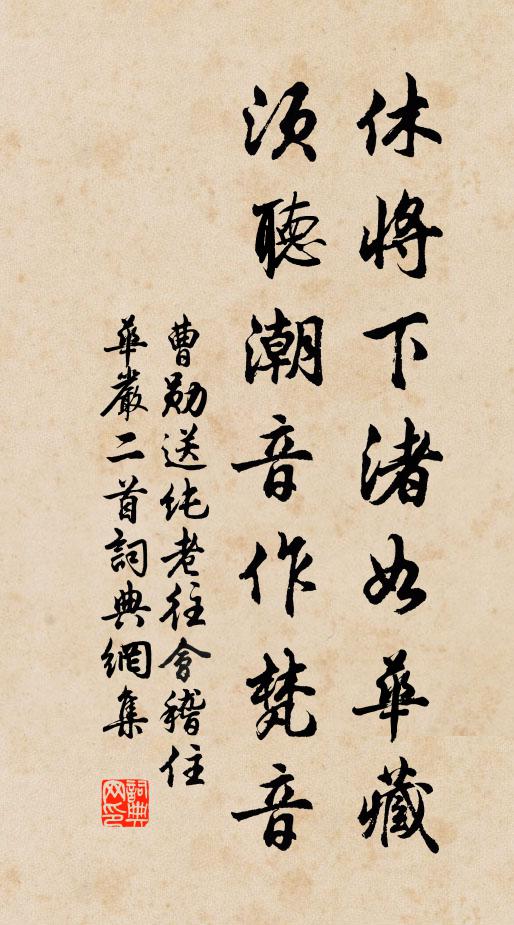 休將下渚如華藏
須聽潮音作梵音
曹勛送純老往會稽住
華嚴二首詞典網集
詞典网印